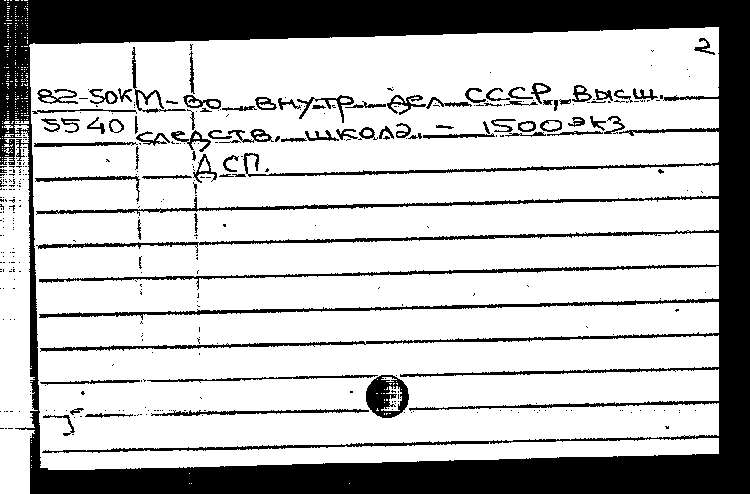 2
82-50К М-во внутр. дел СССР, Высш.
5540 следств. школа. – 1500 экз.
ДСП.